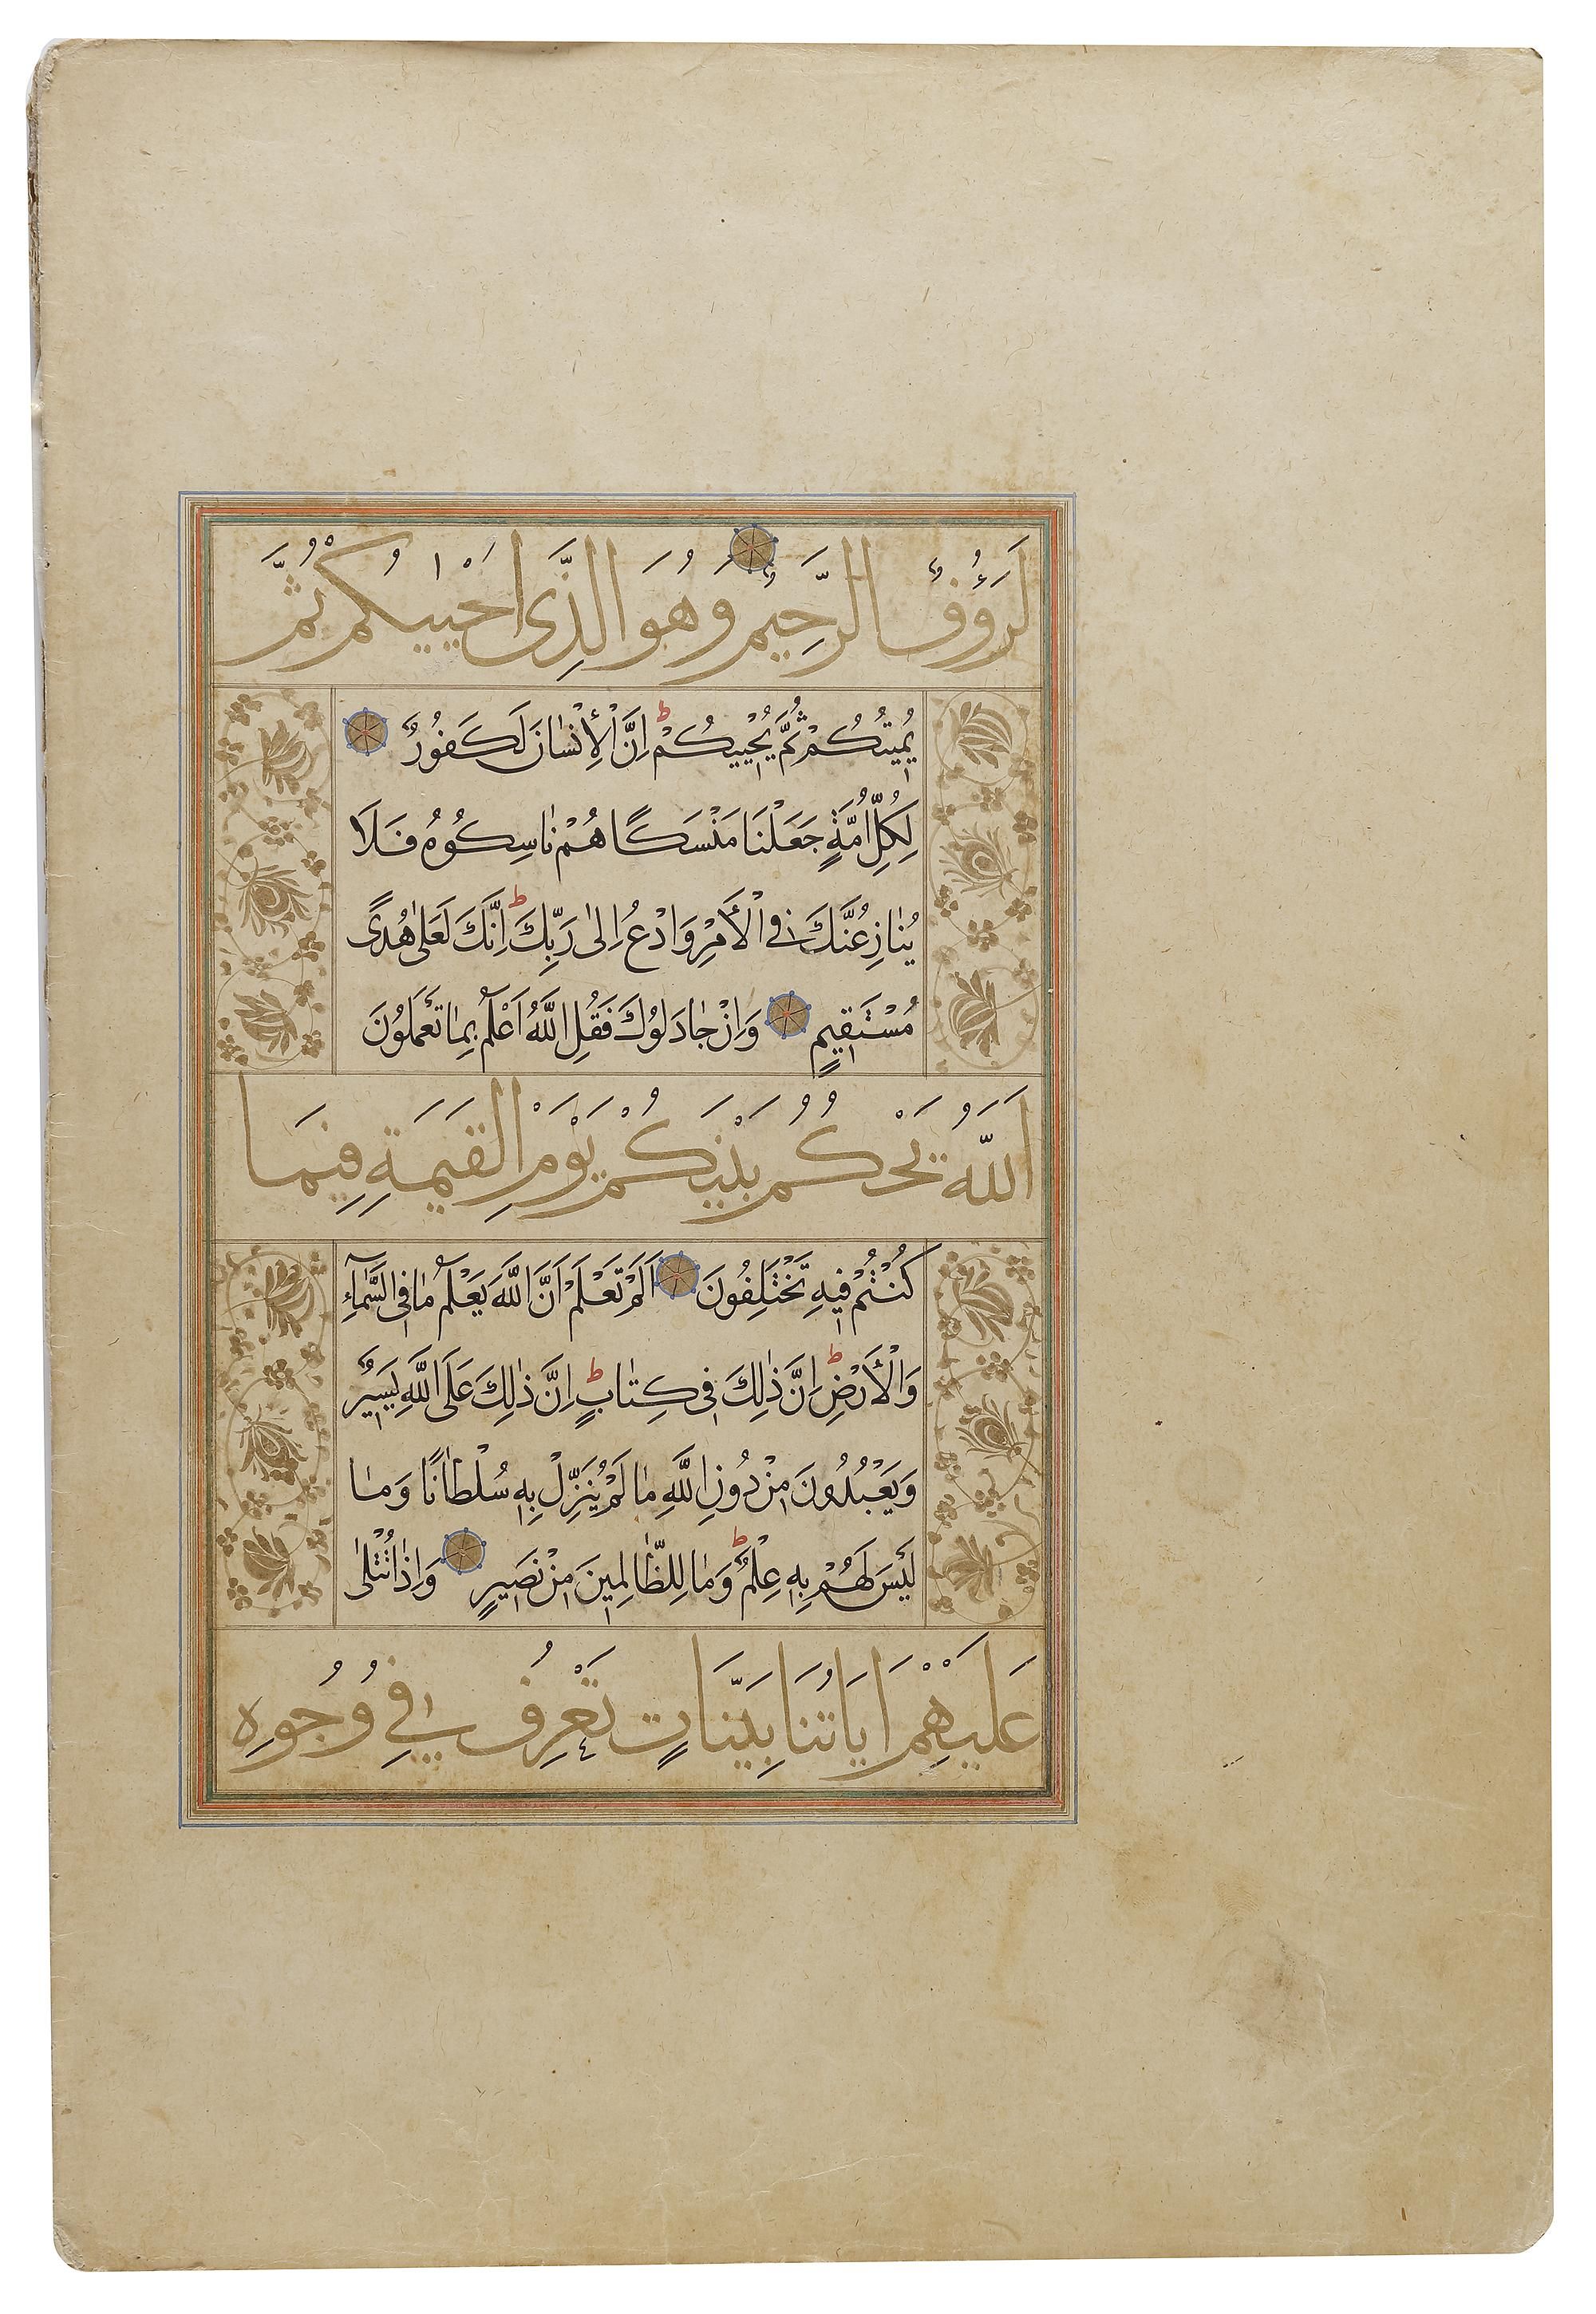 لَرَؤُفٌ الرَّحِيمٌ وَهُوَ الَّذِى اَحْيٰيكُمْ ثُمَّ
يُمِيتُكُمْ ثُمَّ يُحْيِيكُمْ ط اِنَّ الْأِنْسٰانَ لَكَفُورٌ
لِكُلِّ اُمَّةٍ جَعَلْنَا مَنْسَكًا هُمْ نٰاسِكُوهُ فَلَا
يُنٰازِعُنَّكَ فِى الْأَمْرِ وَادْعُ اِلىٰ رَبِّكَ ط اِنَّكَ لَعَلىٰ هُدًى
مُسْتَقِيمٍ وَاِنْ جٰادَلُوكَ فَقُلِ اللَّهُ اَعْلَمُ بِمٰا تَعْمَلُونَ
اَللَّهُ يَحْكُمُ بَيْنَكُمْ يَوْمَ الْقِيٰمَةِ فِيمَا
كُنْتُمْ فِيهِ تَخْتَلِفُونَ اَلَمْ تَعْلَمْ اَنَّ اللَّهَ يَعْلَمُ مٰا فِى السَّمٰآءِ
وَالْأَرْضِ ط اِنَّ ذٰلِكَ فِى كِتٰابٍ ط اِنَّ ذٰلِكَ عَلَى اللَّهِ يَسِيرٌ
وَيَعْبُدُونَ مِنْ دُونِ اللَّهِ مٰا لَمْ يُنَزِّلْ بِهِ سُلْطٰانًا وَمٰا
لَيْسَ لَهُمْ بِهِ عِلْمٌ ط وَمٰا لِلظّٰالِمِينَ مِنْ نَصِيرٍ وَاِذٰا تُتْلىٰ
عَلَيْهِمْ اٰيَاتُنَا بَيِّنَاتٍ تَعْرِفُ فِى وُجُوهِ